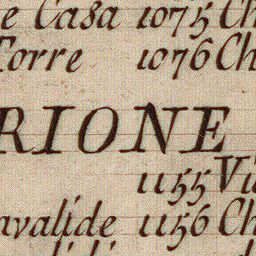 e Casa 1075 Ch
Torre 1076 Ch
RIONE
1155 Vi
nvalide 1156 Ch